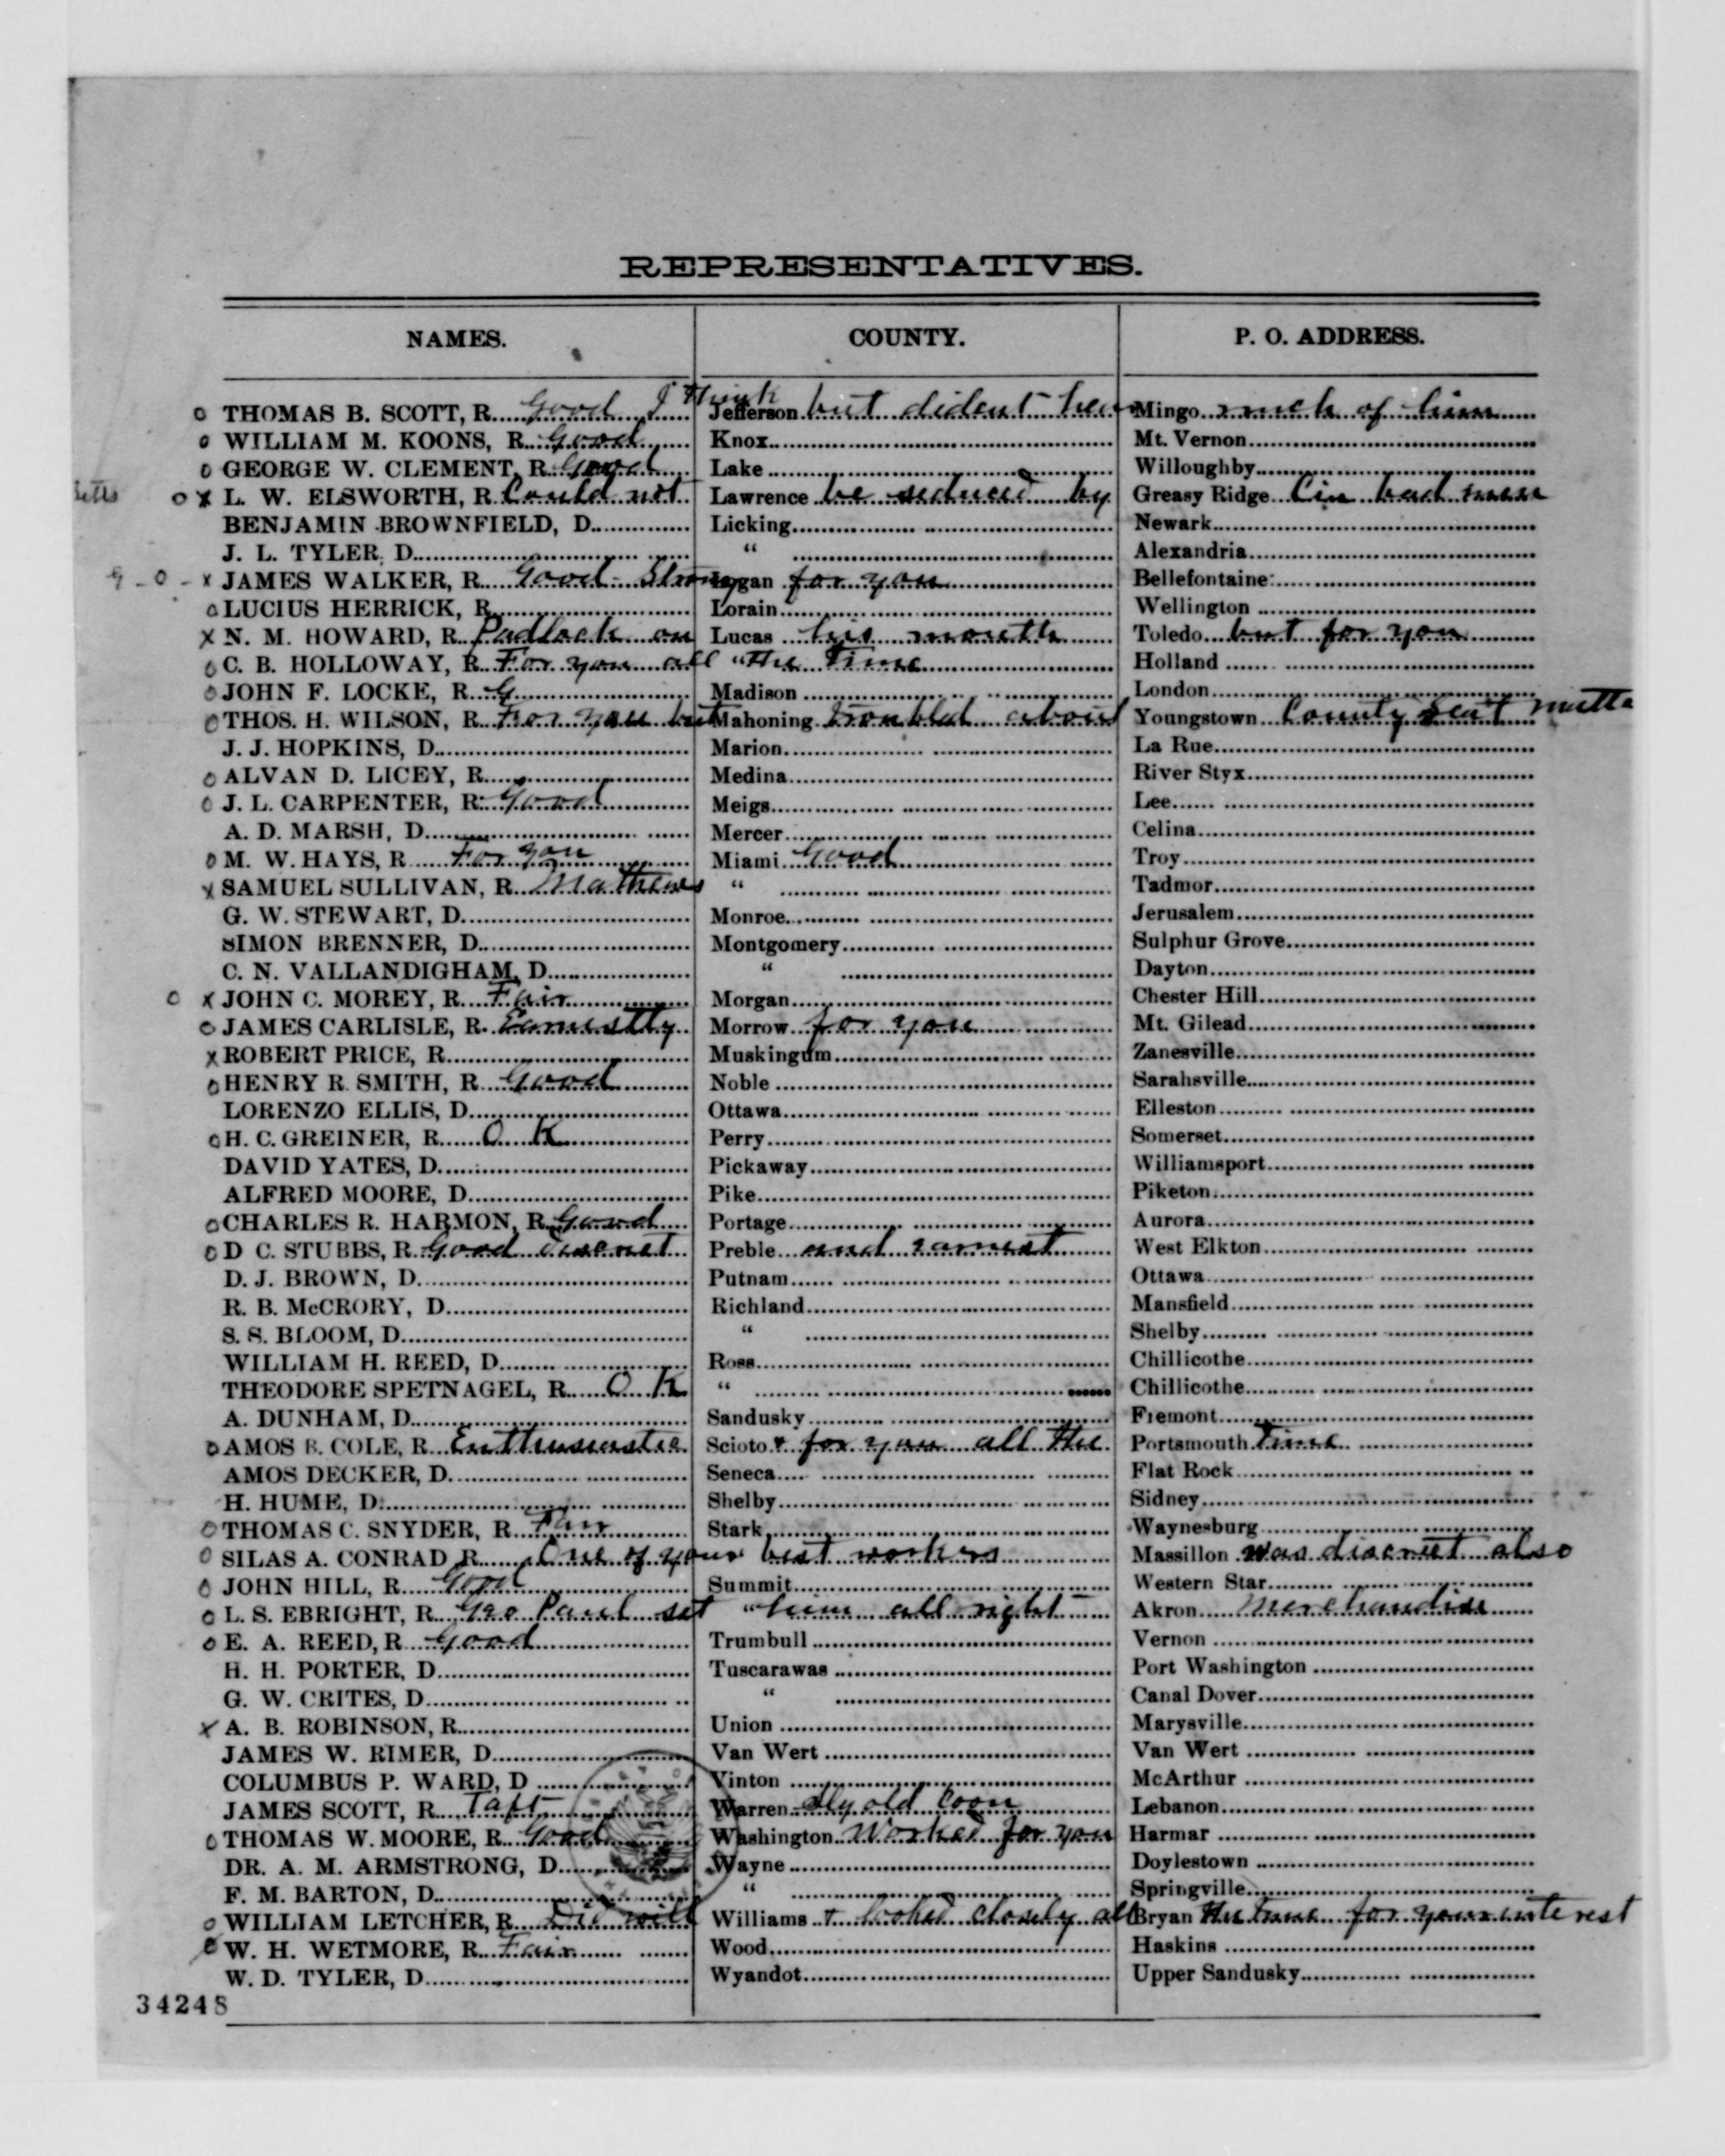 REPRESENTATIVES.
NAMES. COUNTY. P. O. ADDRESS.
o THOMAS B. SCOTT, R. Good I think Jefferson but dident hear Mingo much of him
o WILLIAM M. KOONS, R. Good Knox Mt. Vernon
o GEORGE W. CLEMENT, R. Good Lake Willoughby
o x L. W. ELSWORTH, R. Could not Lawrence be seduced by Greasy Ridge Cin bad men
BENJAMIN BROWNFIELD, D. Licking Newark
J. L. TYLER, D. " Alexandria
9 - o - x JAMES WALKER, R. Good Strong Logan for you Bellefontaine
o LUCIUS HERRICK, R. Lorain Wellington
x N. M. HOWARD, R. Padlock on Lucas his mouth Toledo but for you
o C. B. HOLLOWAY, R. For you all " the time Holland
o JOHN F. LOCKE, R. G Madison London
o THOS. H. WILSON, R. For you but Mahoning troubled about Youngstown County Seat
J. J. HOPKINS, D. Marion La Rue
o ALVAN D. LICEY, R. Medina River Styx
o J. L. CARPENTER, R. Good Meigs Lee
A. D. MARSH, D. Mercer Celina
o M. W. HAYS, R For you Miami Good Troy
x SAMUEL SULLIVAN, R. Mathews " Tadmor
G. W. STEWART, D. Monroe Jerusalem
SIMON BRENNER, D. Montgomery Sulphur Grove
C. N. VALLANDIGHAM, D. " Dayton
o x JOHN C. MOREY, R. Fair Morgan Chester Hill
o JAMES CARLISLE, R. Earnestly Morrow for you Mt. Gilead
x ROBERT PRICE, R. Muskingum Zanesville
o HENRY R. SMITH, R Good Noble Sarahsville
LORENZO ELLIS, D. Ottawa Elleston
o H. C. GREINER, R. O K Perry Somerset
DAVID YATES, D. Pickaway Williamsport
ALFRED MOORE, D. Pike Piketon
o CHARLES R. HARMON, R. Good Portage Aurora
o D C. STUBBS, R. Good discreet Preble and earnest West Elkton
D. J. BROWN, D. Putnam Ottawa
R. B. McCRORY, D. Richland Mansfield
S. S. BLOOM, D. " Shelby
WILLIAM H. REED, D. Ross Chillicothe
THEODORE SPETNAGEL, R. O K " Chillicothe
A. DUNHAM, D. Sandusky Fremont
o AMOS B. COLE, R. Enthusiastic Scioto & for you all the Portsmouth time
AMOS DECKER, D. Seneca Flat Rock
H. HUME, D. Shelby Sidney
o THOMAS C. SNYDER, R. Fair Stark Waynesburg
o SILAS A. CONRAD R. One of your best workers Massillon was discreet also
o JOHN HILL, R. Good Summit Western Star
o L. S. EBRIGHT, R. Geo Paul set " him all right Akron Merchandise
o E. A. REED, R Good Trumbull Vernon
H. H. PORTER, D. Tuscarawas Port Washington
G. W. CRITES, D. " Canal Dover
x A. B. ROBINSON, R. Union Marysville
JAMES W. RIMER, D. Van Wert Van Wert
COLUMBUS P. WARD, D Vinton McArthur
JAMES SCOTT, R. Taft Warren Sly old Coon Lebanon
o THOMAS W. MOORE, R. Good Washington Worked for you Harmar
DR. A. M. ARMSTRONG, D. Wayne Doylestown
F. M. BARTON, D. " Springville
o WILLIAM LETCHER, R. Did well Williams & looked closely all Bryan the time for your interest
W. H. WETMORE, R. Fair Wood Haskins
W. D. TYLER, D. Wyandot Upper Sandusky
34248